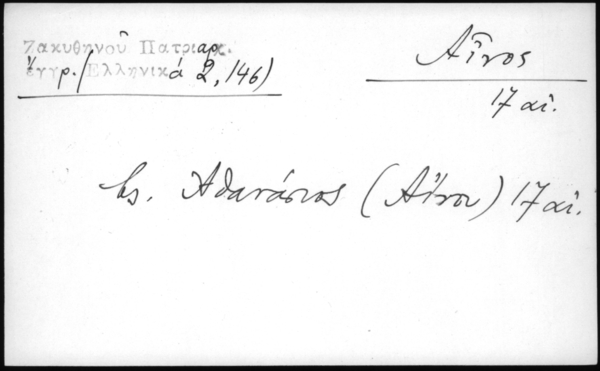 Ζακυθηνοῦ Πατριαρχ.
ἔγγρ. (Ἑλληνικά 2, 146)
Αἶνος
17 αἰ.
Ἀθανάσιος (Αἴνου) 17 αἰ.